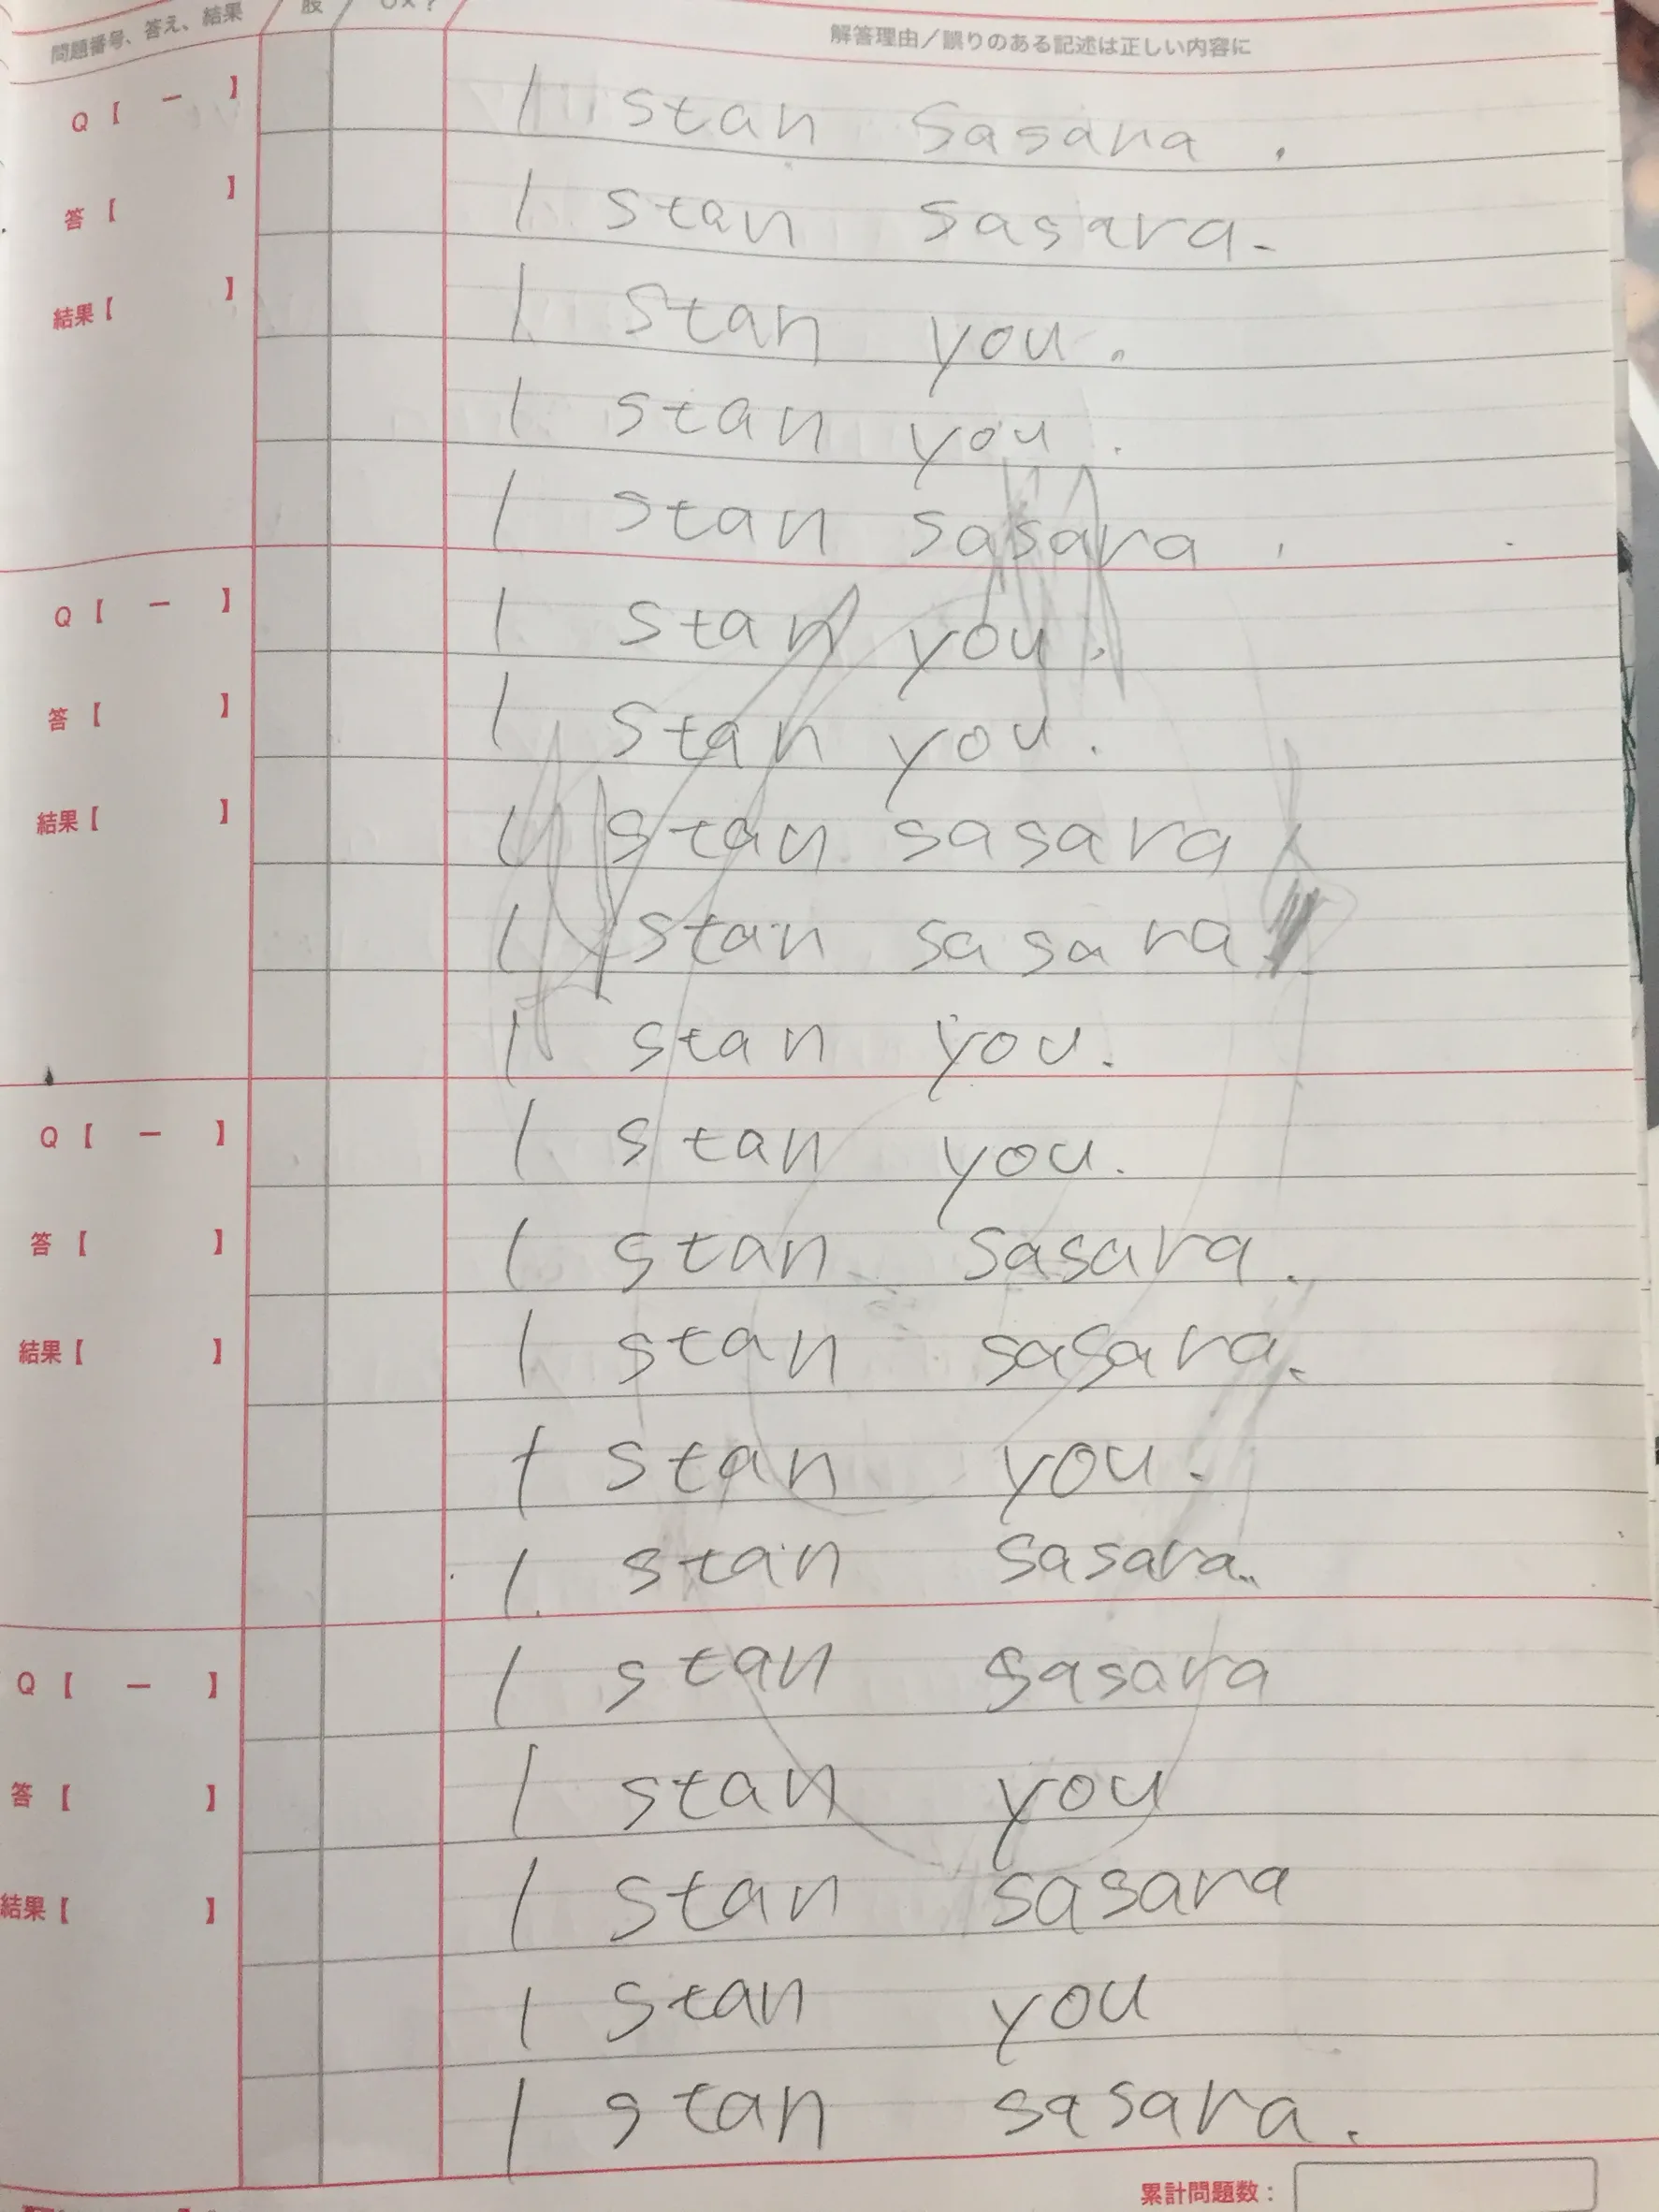 問題番号、答え、結果
解答理由／誤りのある記述は正しい内容に
Q【 ー 】
答【 】
結果【 】
I stan sasara.
I stan sasara.
I stan you.
I stan you.
I stan sasara.
Q【 ー 】
答【 】
結果【 】
I stan you.
I stan you.
I stan sasara
I stan sasara.
I stan you.
Q【 ー 】
答【 】
結果【 】
I stan you.
I stan sasara.
I stan sasara.
I stan you.
I stan sasara.
Q【 ー 】
答【 】
結果【 】
I stan sasara
I stan you
I stan sasara
I stan you
I stan sasara.
累計問題数：